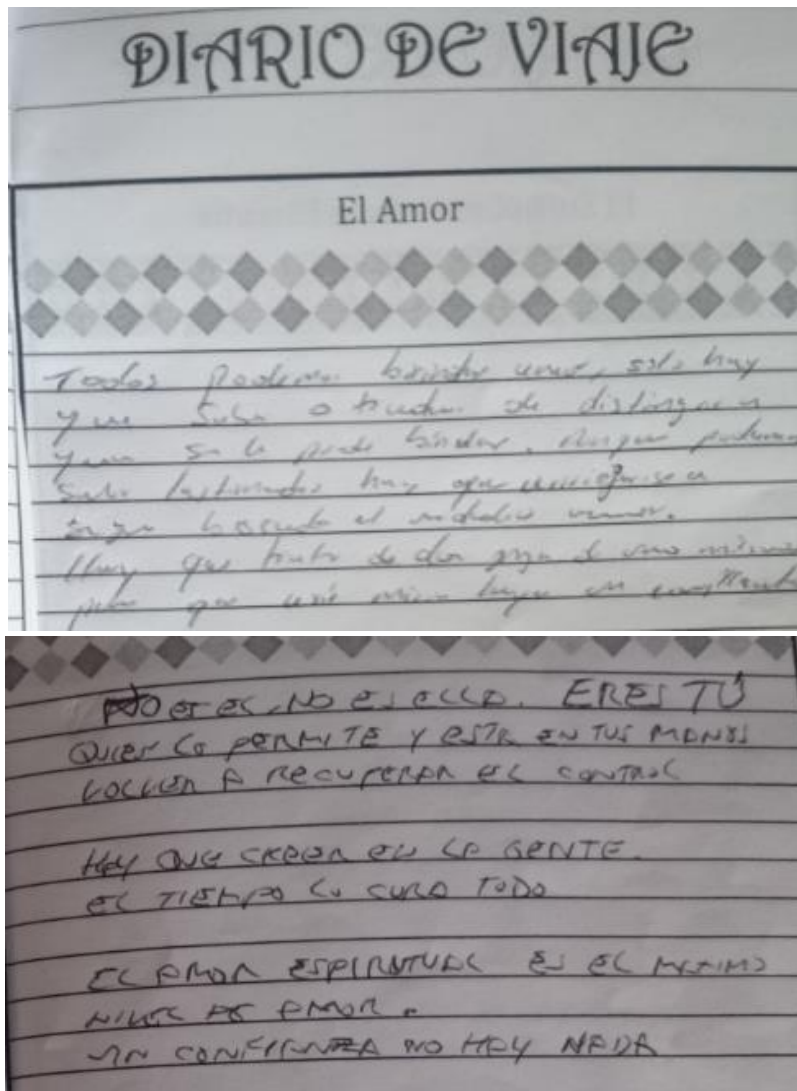 DIARIO DE VIAJE
El Amor
Todos podemos brindar amor, solo hay
que o tratar de distinguir a
quien se le puede brindar. Aunque podamos
salir lastimados hay que arriesgarse a
seguir buscando el verdadero amor.
Hay que tratar de dar de uno mismo
para que
NO ES EL, NO ES ELLA. ERES TÚ
QUIEN LO PERMITE Y ESTA EN TUS MANOS
VOLVER A RECUPERAR EL CONTROL
HAY QUE CREER EN LA GENTE.
EL TIEMPO LO CURA TODO
EL AMOR ESPIRITUAL ES EL MAXIMO
NIVEL DE AMOR.
SIN CONFIANZA NO HAY NADA